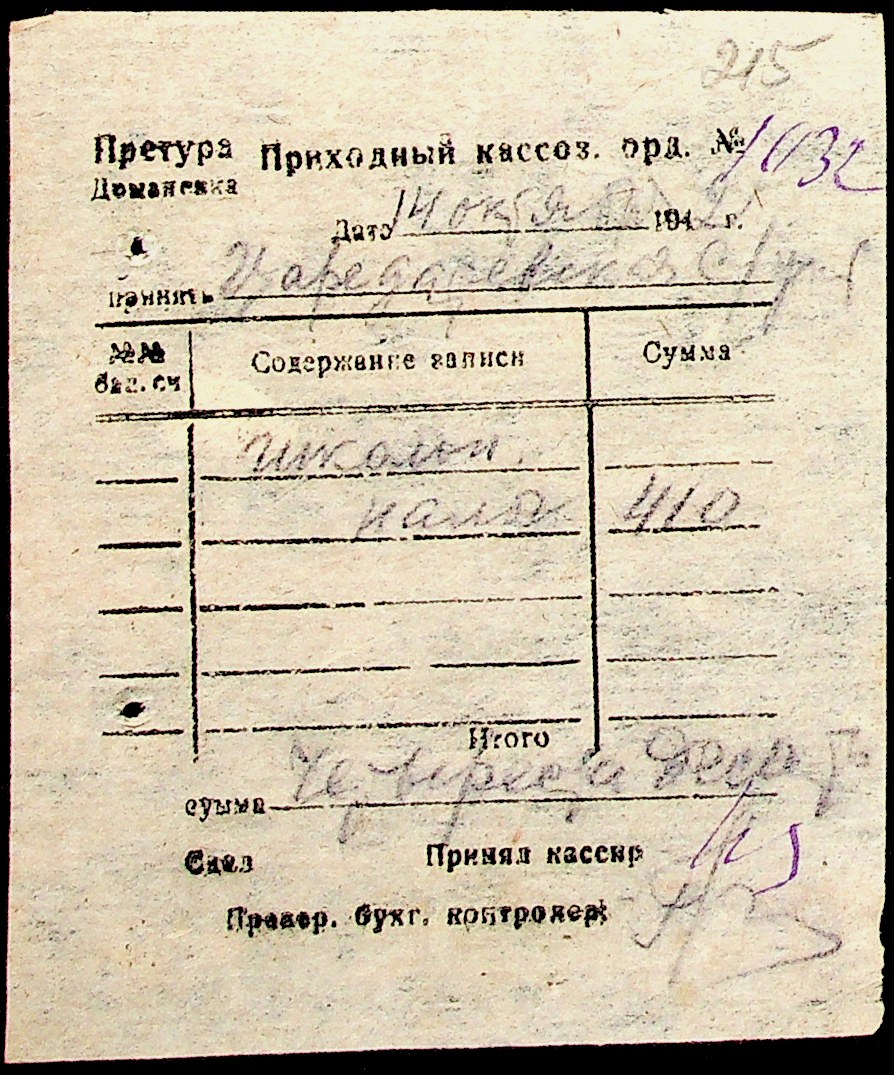 215
Претура Приходный кассов. орд. № 1032
Доманевка
Дато 14 октя 1942 г.
принять
№№ бал. сч Содержание записи Сумма
школьн.
410
Итого
сумма Четыреста десять
Сдал Принял кассир
Провер. бухг. контролер